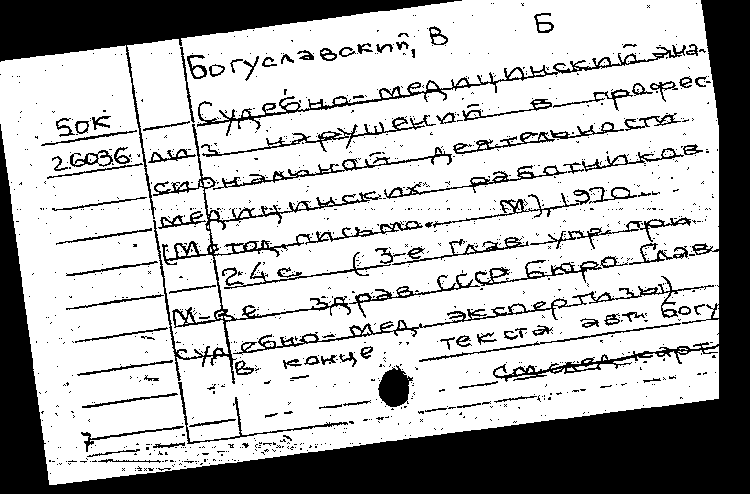 Б
Богуславский, В
Судебно-медицинский ана-
50К
лиз нарушений в профес-
26036
сиональной деятельности
медицинских работников.
[Метод. письмо. М], 1970
24 с. (3-е Глав. упр. при
М-ве здрав. СССР Бюро Глав.
судебно-мед. экспертизы)
В конце текста авт. Богу
См след. карт.
7